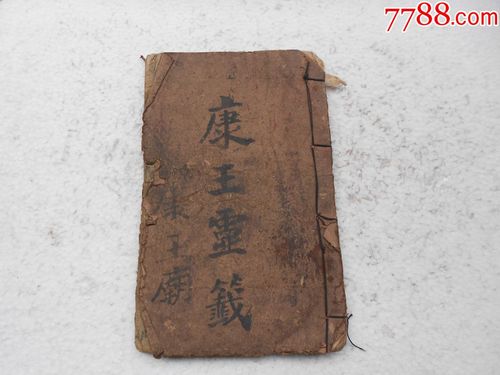 7788.com
康王靈籤
康王廟